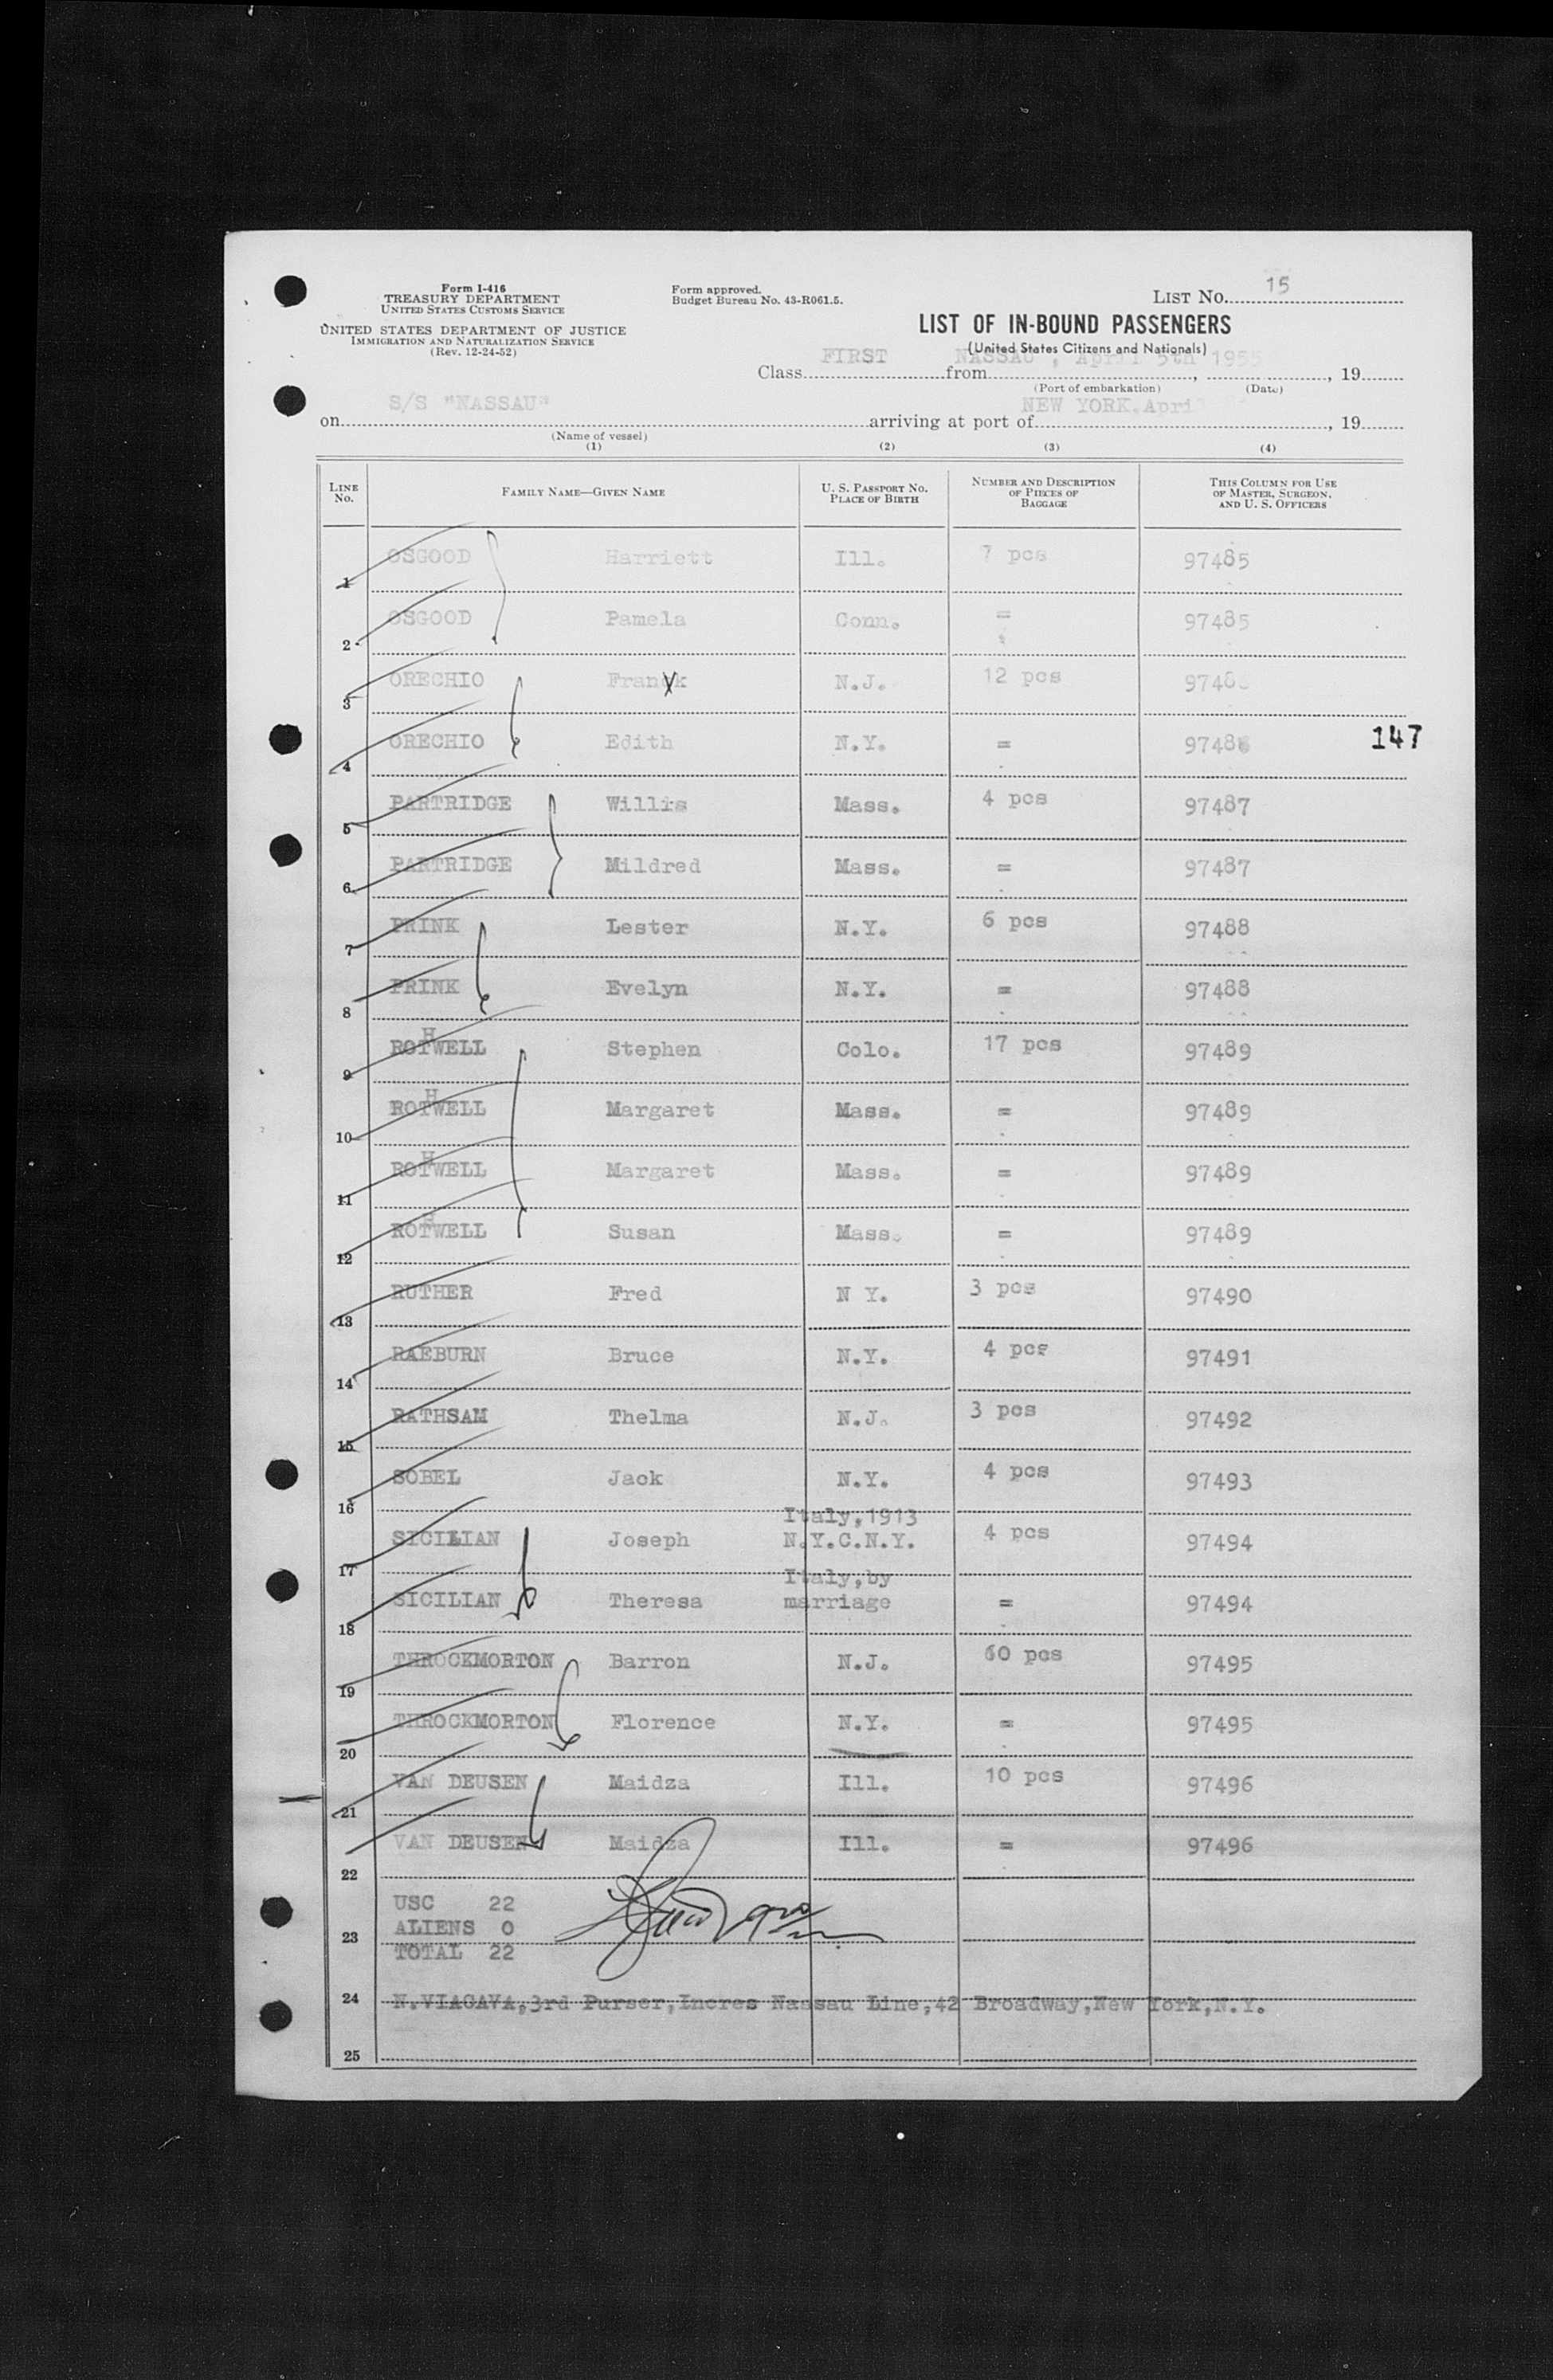 Form I-416
TREASURY DEPARTMENT
UNITED STATES CUSTOMS SERVICE
UNITED STATES DEPARTMENT OF JUSTICE
IMMIGRATION AND NATURALIZATION SERVICE
(Rev. 12-24-52)
Form approved.
Budget Bureau No. 43-R061.5.
LIST No. 15
LIST OF IN-BOUND PASSENGERS
(United States Citizens and Nationals)
Class FIRST from NASSAU, April 5th 1955, 19
(Port of embarkation) (Date)
on S/S "NASSAU" arriving at port of NEW YORK, April, 19
(Name of vessel)
(1) (2) (3) (4)
LINE No. FAMILY NAME—GIVEN NAME U. S. PASSPORT No. PLACE OF BIRTH NUMBER AND DESCRIPTION OF PIECES OF BAGGAGE THIS COLUMN FOR USE OF MASTER, SURGEON, AND U. S. OFFICERS
1 OSGOOD Harriett Ill. 7 pcs 97485
2 OSGOOD Pamela Conn. = 97485
3 ORECHIO Franck N.J. 12 pcs
4 ORECHIO Edith N.Y. = 97486 147
5 PARTRIDGE Willis Mass. 4 pcs 97487
6 PARTRIDGE Mildred Mass. = 97487
7 PRINK Lester N.Y. 6 pcs 97488
8 PRINK Evelyn N.Y. = 97488
9 ROTHWELL Stephen Colo. 17 pcs 97489
10 ROTHWELL Margaret Mass. = 97489
11 ROTHWELL Margaret Mass. = 97489
12 ROTHWELL Susan Mass. = 97489
13 RUTHER Fred N Y. 3 pcs 97490
14 RAEBURN Bruce N.Y. 4 pcs 97491
15 RATHSAM Thelma N.J. 3 pcs 97492
16 SOBEL Jack N.Y. 4 pcs 97493
Italy,1913
17 SICILIAN Joseph N.Y.C.N.Y. 4 pcs 97494
Italy,by
18 SICILIAN Theresa marriage = 97494
19 THROCKMORTON Barron N.J. 60 pcs 97495
20 THROCKMORTON Florence N.Y. = 97495
21 VAN DEUSEN Maidza Ill. 10 pcs 97496
22 VAN DEUSEN Maidza Ill. = 97496
USC 22
23 ALIENS 0
TOTAL 22
24 N.VIACAVA,3rd Purser,Incres Nassau Line,42 Broadway,New York,N.Y.
25